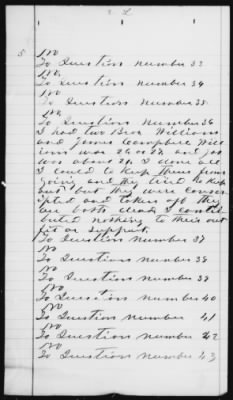 5
no
To Question number 33
no
To Question number 34
no
To Question number 35
no
To Question number 36
I had two Bros Williams
and James Campbell Will
iams was 26 or 27 and Jas
was about 24 I done all
I could to keep them from
going and they tried to keep
out but they were conscr
ipted and taken off they
are both dead I contri
buted nothing to their out
fit or support
To Question Number 37
no
To Question number 38
no
To Question number 39
no
To Question number 40
no
To Question number 41
no
To Question number 42
no
To Question number 43